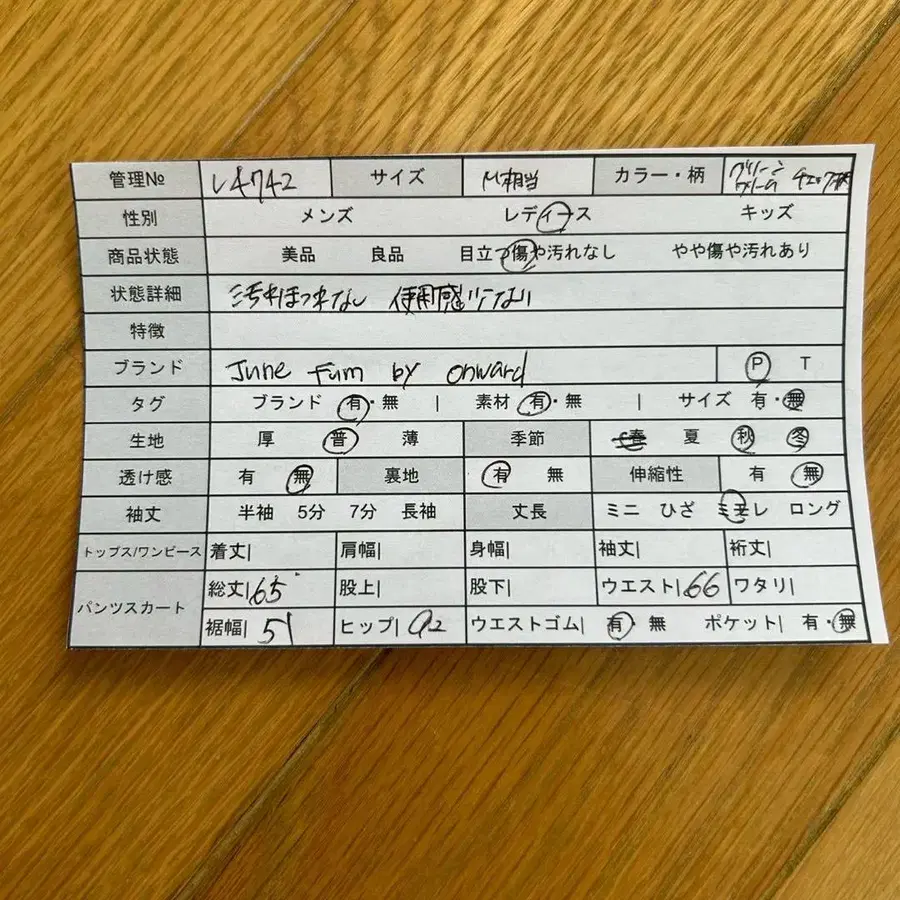 管理№ L4742 サイズ M相当 カラー・柄 グリーン クリーム チェック柄
性別 メンズ レディース キッズ
商品状態 美品 良品 目立つ傷や汚れなし やや傷や汚れあり
状態詳細 汚れほつれなし 使用感少ない
特徴
ブランド June fum by onward P T
タグ ブランド 有・無 | 素材 有・無 | サイズ 有・無
生地 厚 普 薄 季節 春 夏 秋 冬
透け感 有 無 裏地 有 無 伸縮性 有 無
袖丈 半袖 5分 7分 長袖 丈長 ミニ ひざ ミモレ ロング
トップス/ワンピース 着丈| 肩幅| 身幅| 袖丈| 裄丈|
パンツスカート 総丈| 65 股上| 股下| ウエスト| 66 ワタリ|
裾幅| 51 ヒップ| 92 ウエストゴム| 有・無 ポケット| 有・無